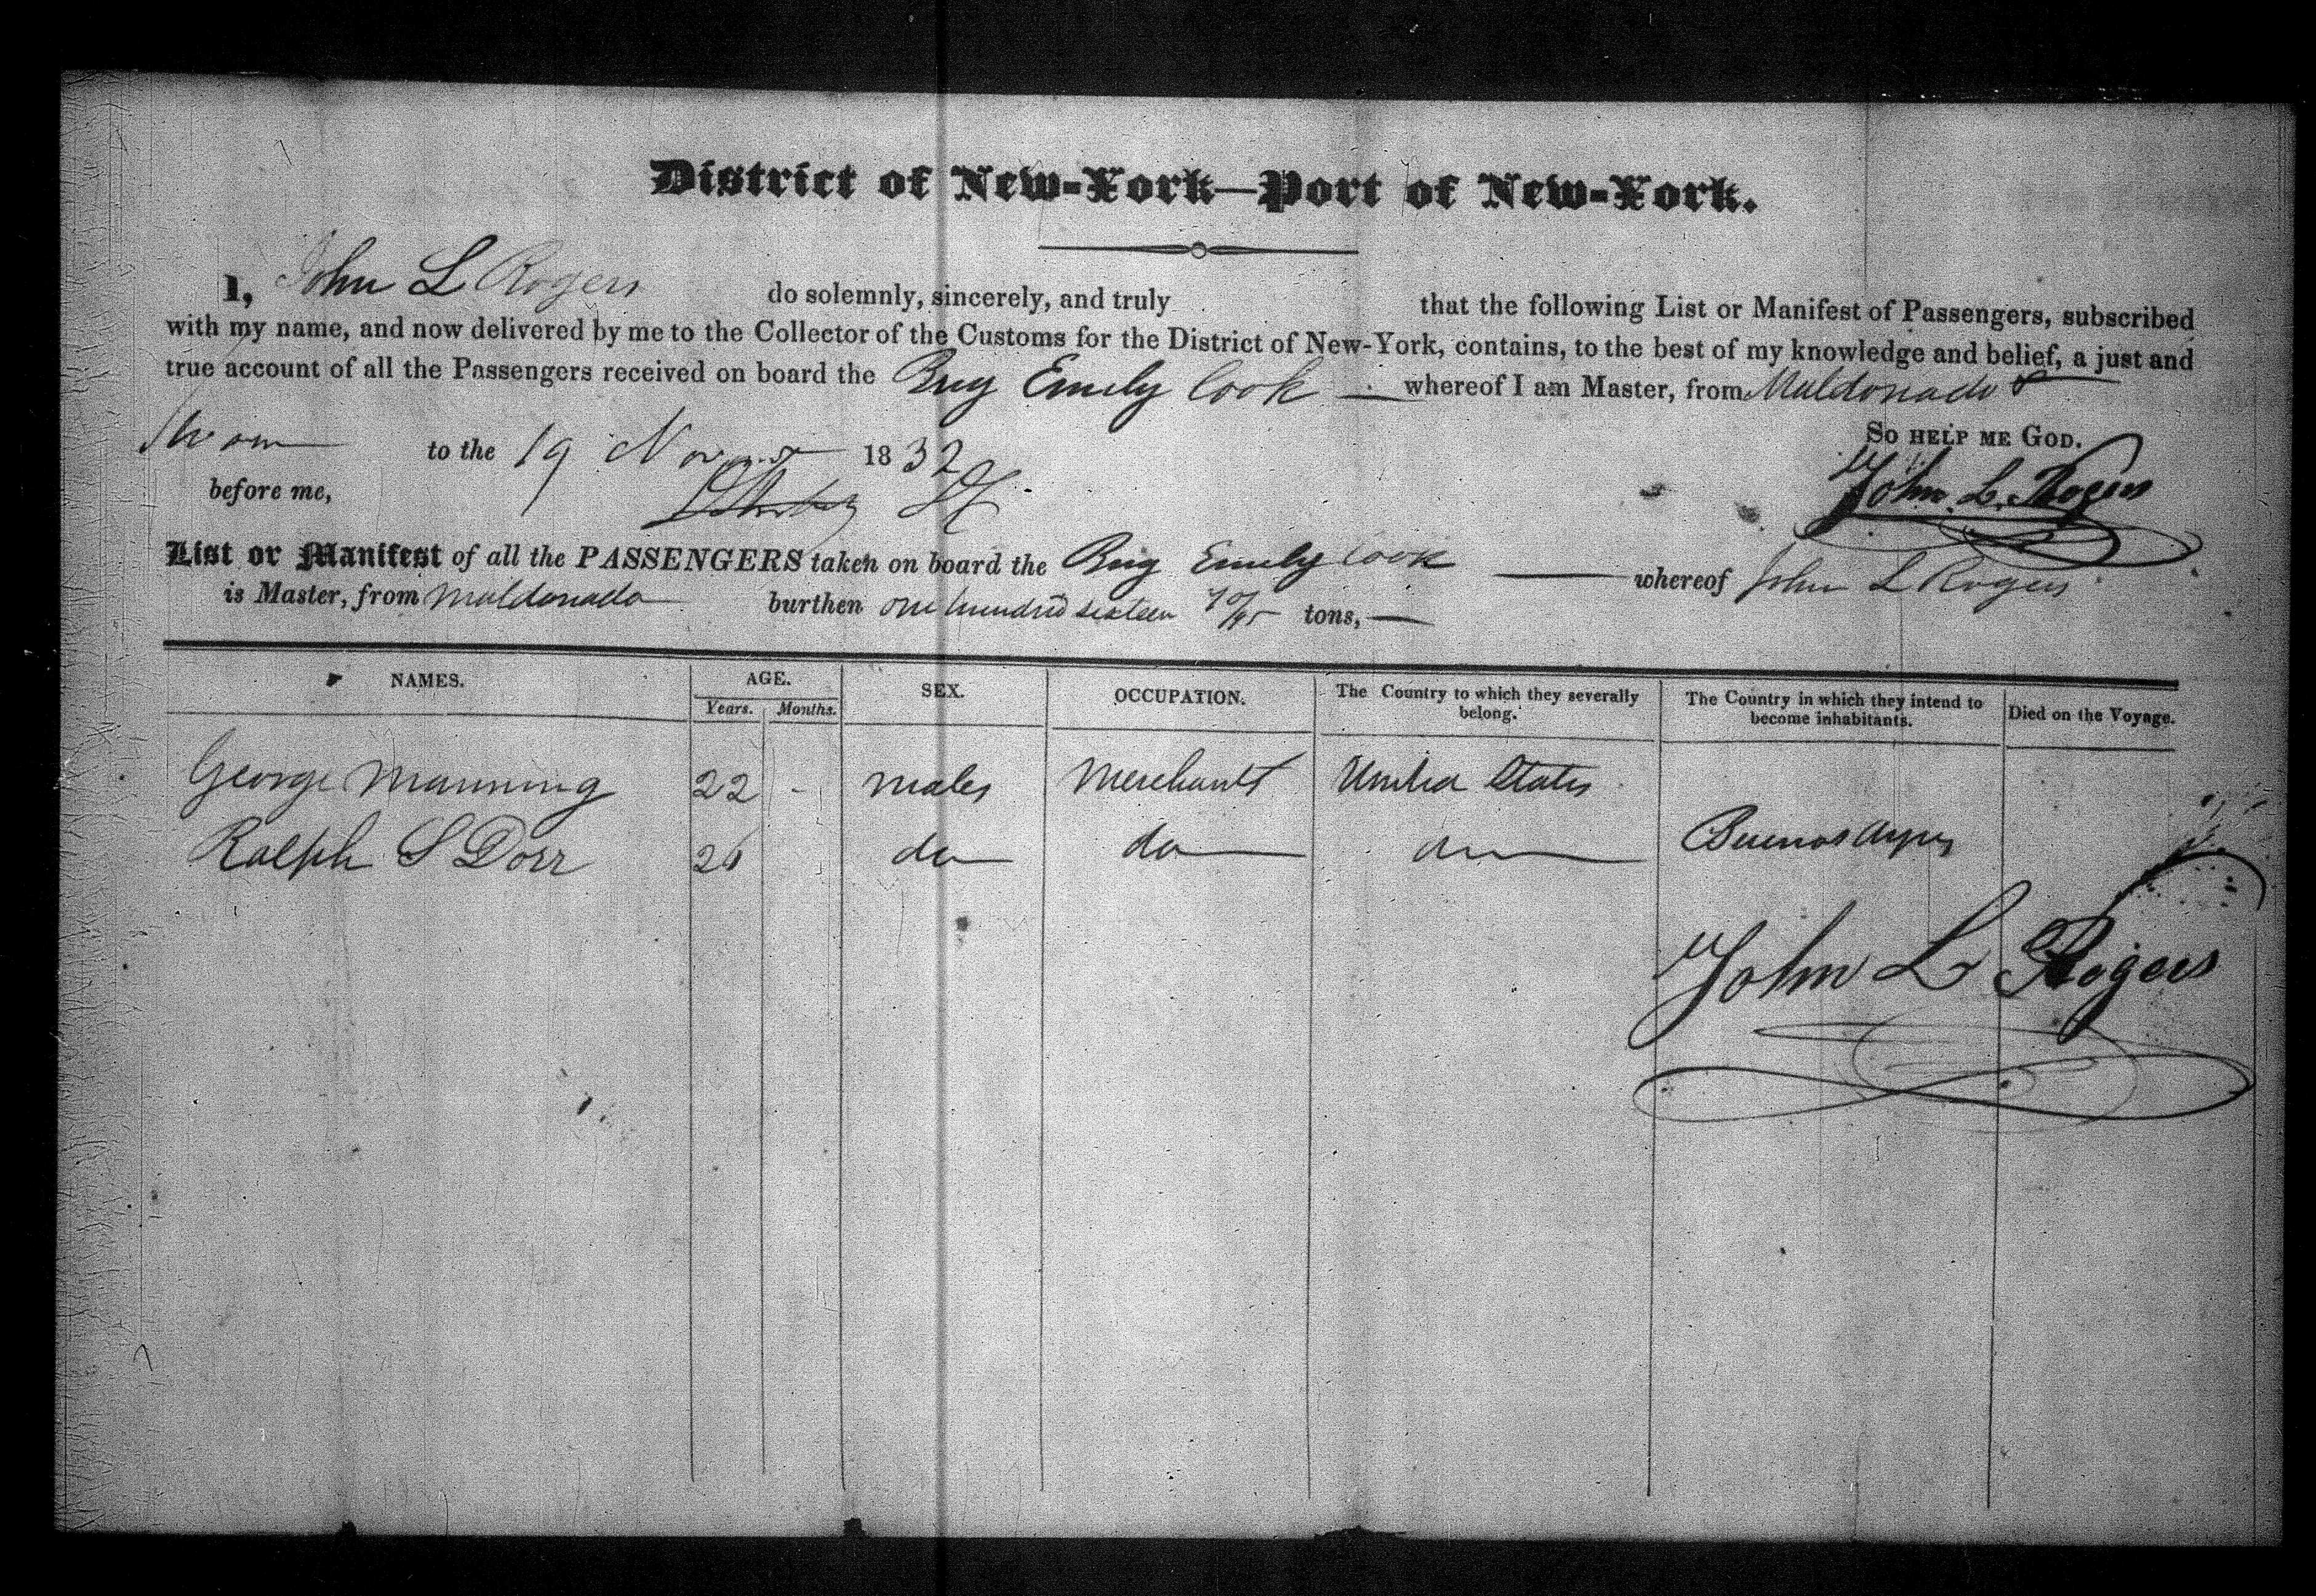 District of New-York—Port of New-York.
I, John L Rogers do solemnly, sincerely, and truly that the following List or Manifest of Passengers, subscribed
with my name, and now delivered by me to the Collector of the Customs for the District of New-York, contains, to the best of my knowledge and belief, a just and
true account of all the Passengers received on board the Brig Emily Cook — whereof I am Master, from Maldonado
So help me God.
Sworn to the 19 Novr 1832
before me,
John L. Rogers
List or Manifest of all the PASSENGERS taken on board the Brig Emily Cook — whereof John L Rogers
is Master, from Maldonado burthen one hundred sixteen 70/95 tons, —
NAMES. AGE. SEX. OCCUPATION. The Country to which they severally belong. The Country in which they intend to become inhabitants. Died on the Voyage.
Years. Months.
George Manning 22 - males Merchants United States
Ralph S Dorr 26 do do do Buenos Ayres
John L Rogers